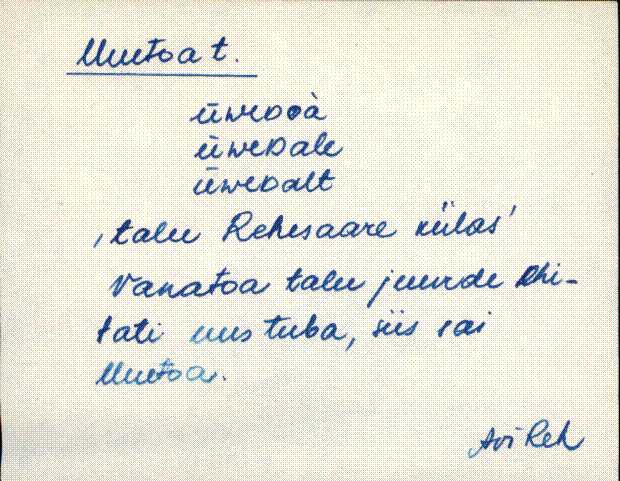 Uustoa t.
ūwᴇᴅᴏà
ūwᴇᴅale
ūwᴇᴅalt
'talu Rehesaare külas'
Vanatoa talu juurde ehi-
tati uus tuba, siis sai
Uustoa.
Avi Reh